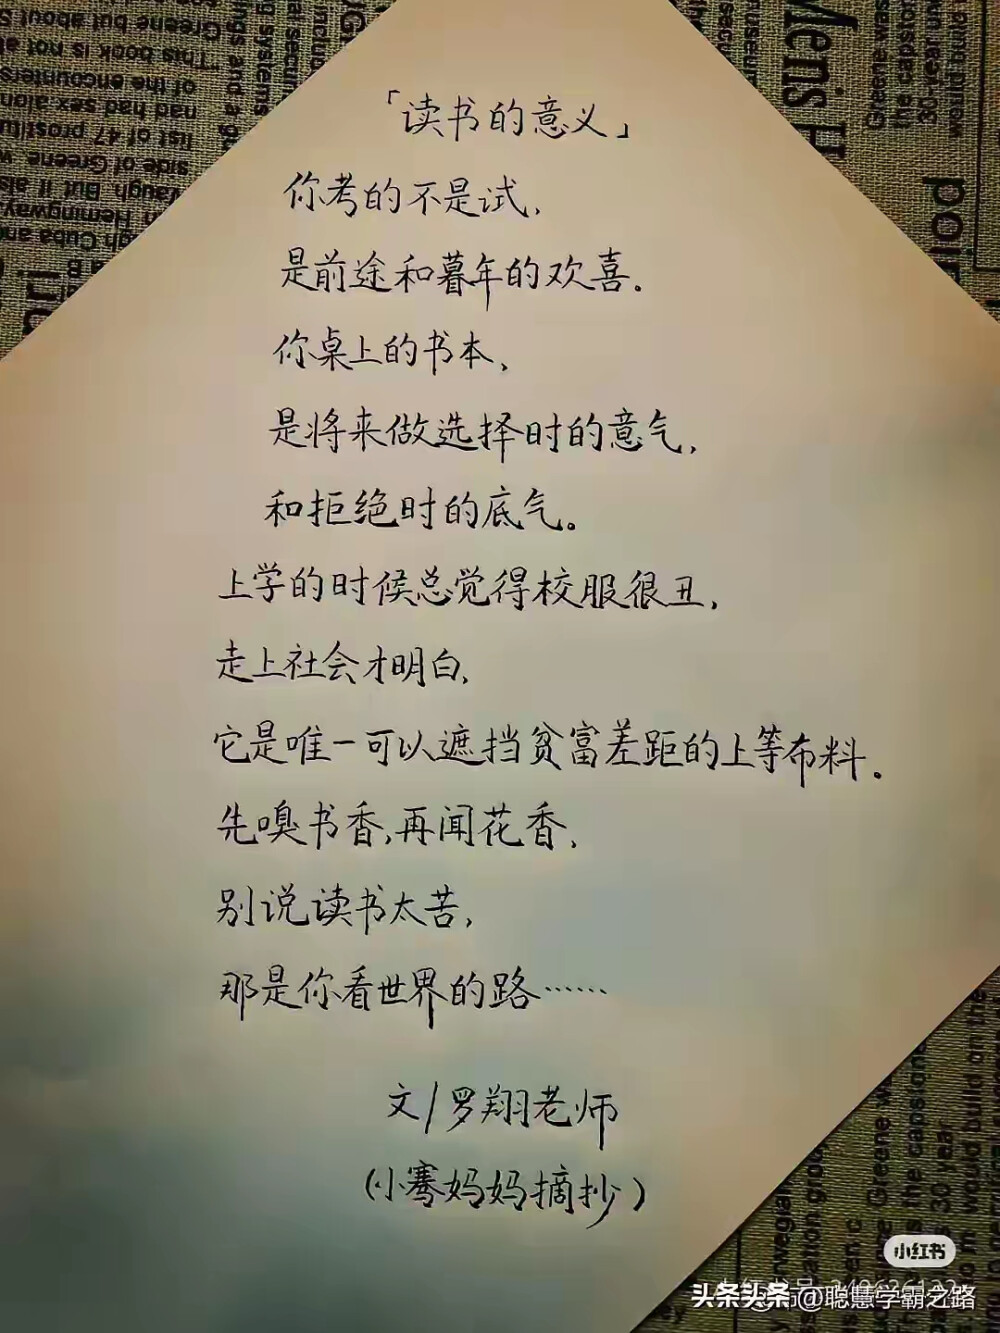 「读书的意义」
你考的不是试,
是前途和暮年的欢喜.
你桌上的书本,
是将来做选择时的意气,
和拒绝时的底气。
上学的时候总觉得校服很丑,
走上社会才明白,
它是唯一可以遮挡贫富差距的上等布料。
先嗅书香,再闻花香,
别说读书太苦,
那是你看世界的路……
文/罗翔老师
(小骞妈妈摘抄)
小红书
头条头条@聪慧学霸之路